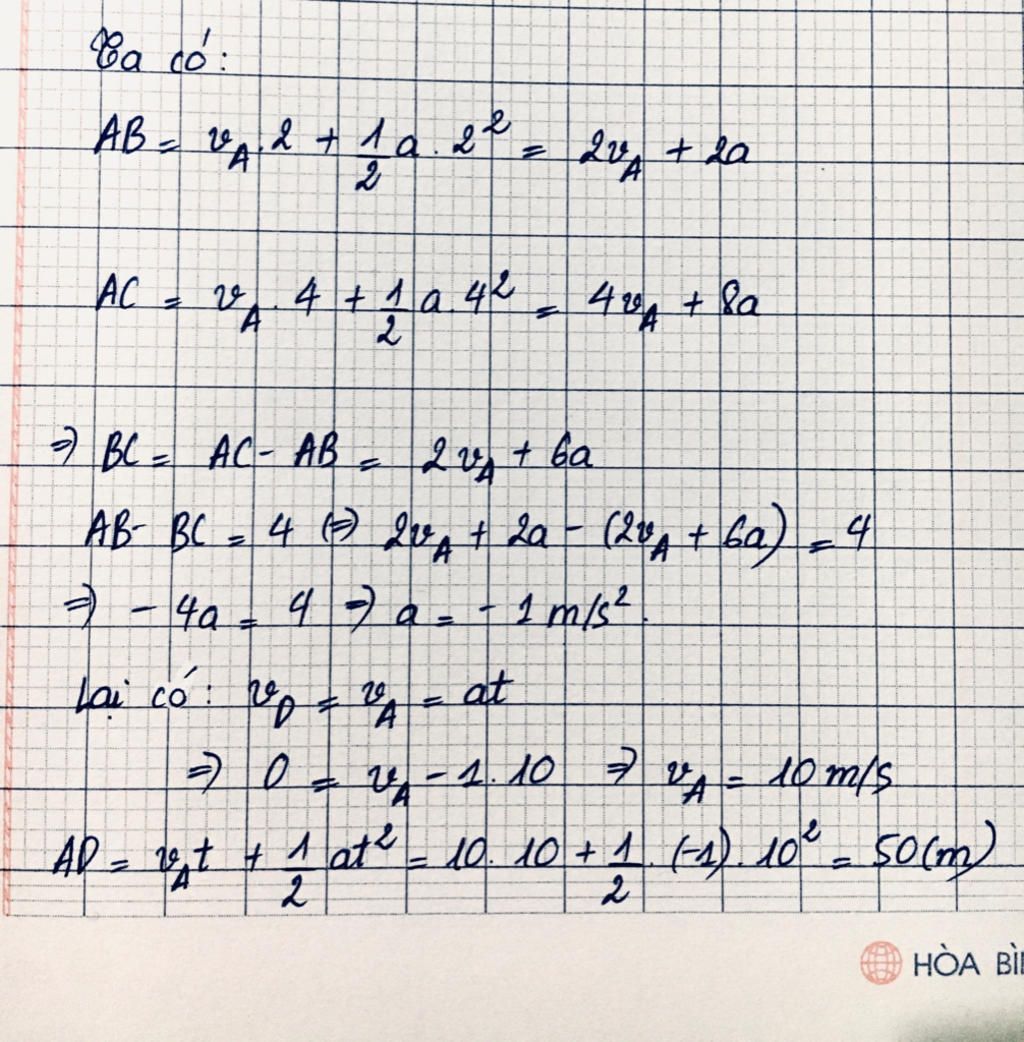 Ta có:
AB = v_A . 2 + 1/2 a . 2² = 2v_A + 2a
AC = v_A . 4 + 1/2 a . 4² = 4v_A + 8a
⇒ BC = AC - AB = 2v_A + 6a
AB - BC = 4 (⇒) 2v_A + 2a - (2v_A + 6a) = 4
⇒ - 4a = 4 ⇒ a = - 1 m/s².
Lại có: v_D = v_A = at
⇒ 0 = v_A - 1. 10 ⇒ v_A = 10 m/s
AD = v_A t + 1/2 at² = 10. 10 + 1/2 . (-1) . 10² = 50 (m)
HÒA